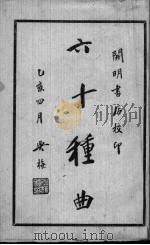 開明書店校印
六十種曲
乙亥四月 吳梅